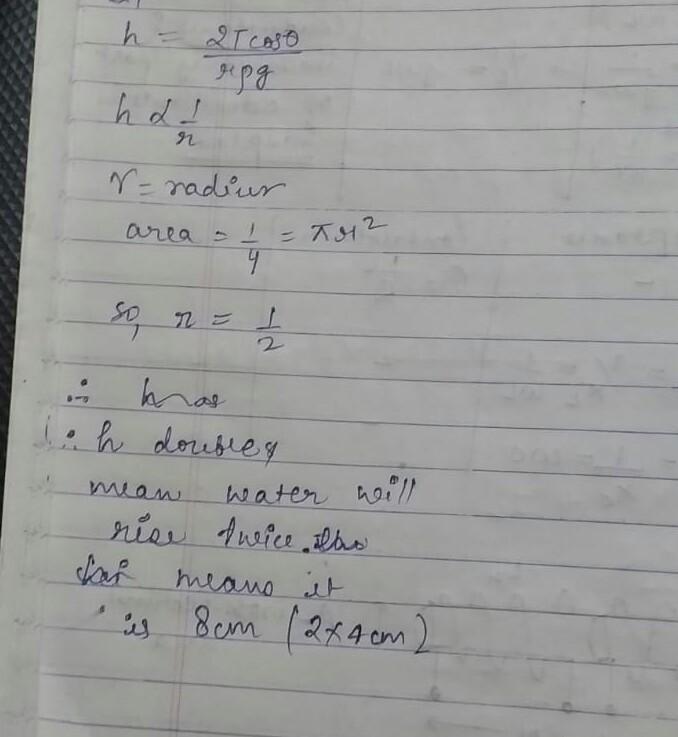 h = 2Tcosθ / rρg
h ∝ 1/r
r = radius
area = 1/4 = πr²
so, r = 1/2
∴ h
∴ h doubles
mean water will
rise twice.
means it
is 8cm (2×4cm)